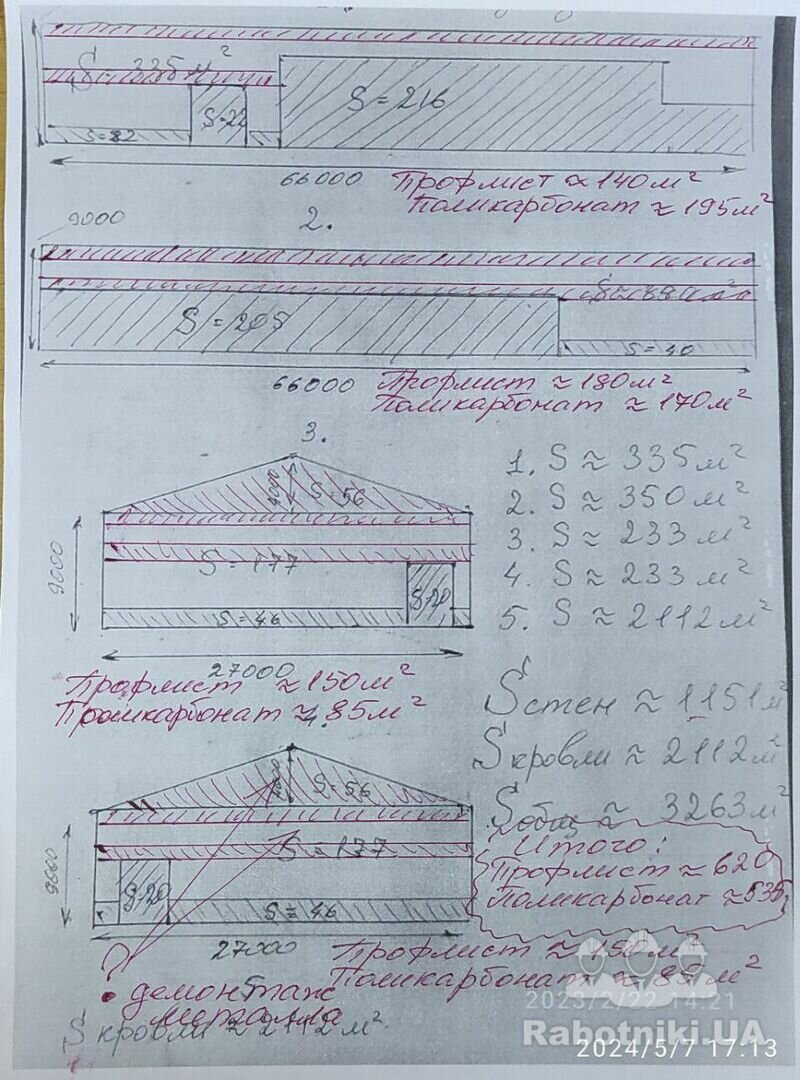 S ≈ 335 м²
S = 216
S = 22
S = 82
66000
Профлист ≈ 140 м²
Поликарбонат ≈ 195 м²
9000
2.
S = 205
S = 40
66000
Профлист ≈ 180 м²
Поликарбонат ≈ 170 м²
3.
4000
S = 56
9000
S = 177
S = 46
S=20
27000
Профлист ≈ 150 м²
≈ 85 м²
1. S ≈ 335 м²
2. S ≈ 350 м²
3. S ≈ 233 м²
4. S ≈ 233 м²
5. S ≈ 2112 м²
S стен ≈ 1151 м²
S кровли ≈ 2112 м²
S общ ≈ 3263 м²
Итого:
Профлист ≈ 620
Поликарбонат ≈ 535
4.
S = 56
S = 177
S=20
S = 46
27000
Профлист ≈ 150 м²
Поликарбонат ≈ 85 м²
?
• демонтаж
металла
S кровли ≈ 2112 м²
2023/2/22 14:21
Rabotniki.UA
2024/5/7 17:13